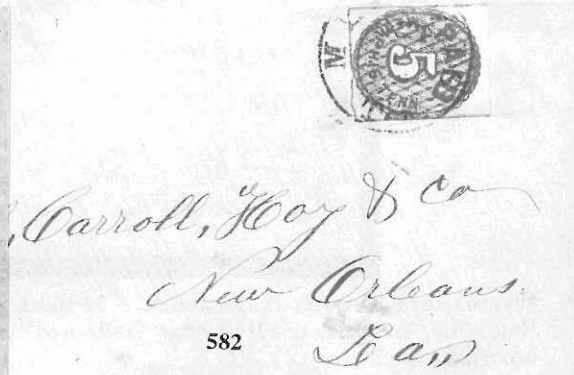 PAID
5
M
, Carroll, Hoy & Co
New Orleans
582
Lou